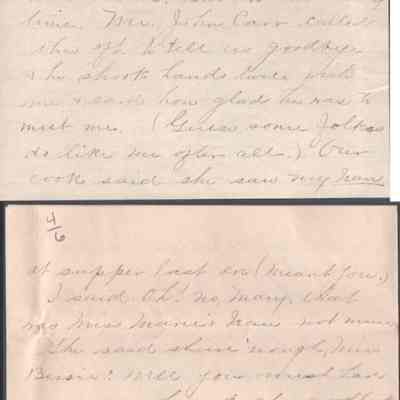 time. Mr. John Carr called
this aft. to tell us goodbye
& he shook hands twice with
me & said how glad he was to
meet me. (Guess some folks
do like me after all.) Our
cook said she saw my
4/6
at supper last eve (meant you,)
I said Oh! no, Mary, that
was Miss Mamie's not mine
She said shure 'nough, Miss
Bessie! Well you must have